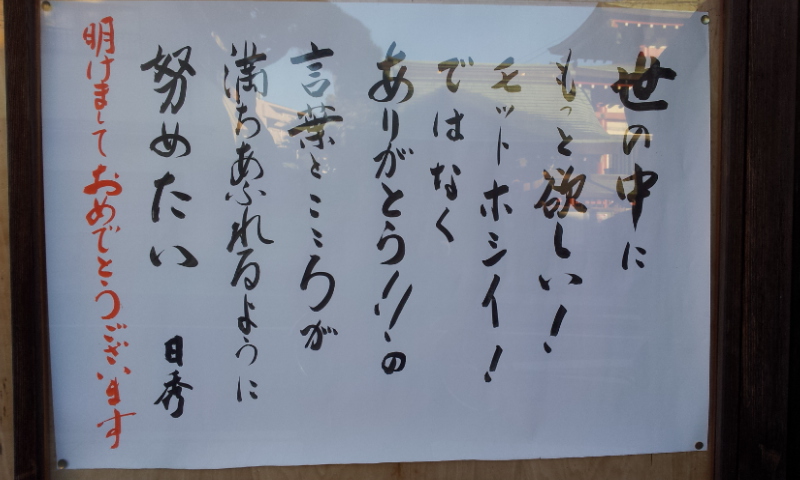 世の中に
もっと欲しい!
モットホシイ!
ではなく
ありがとう!!の
言葉とこころが
満ちあふれるように
努めたい 日秀
明けましておめでとうございます